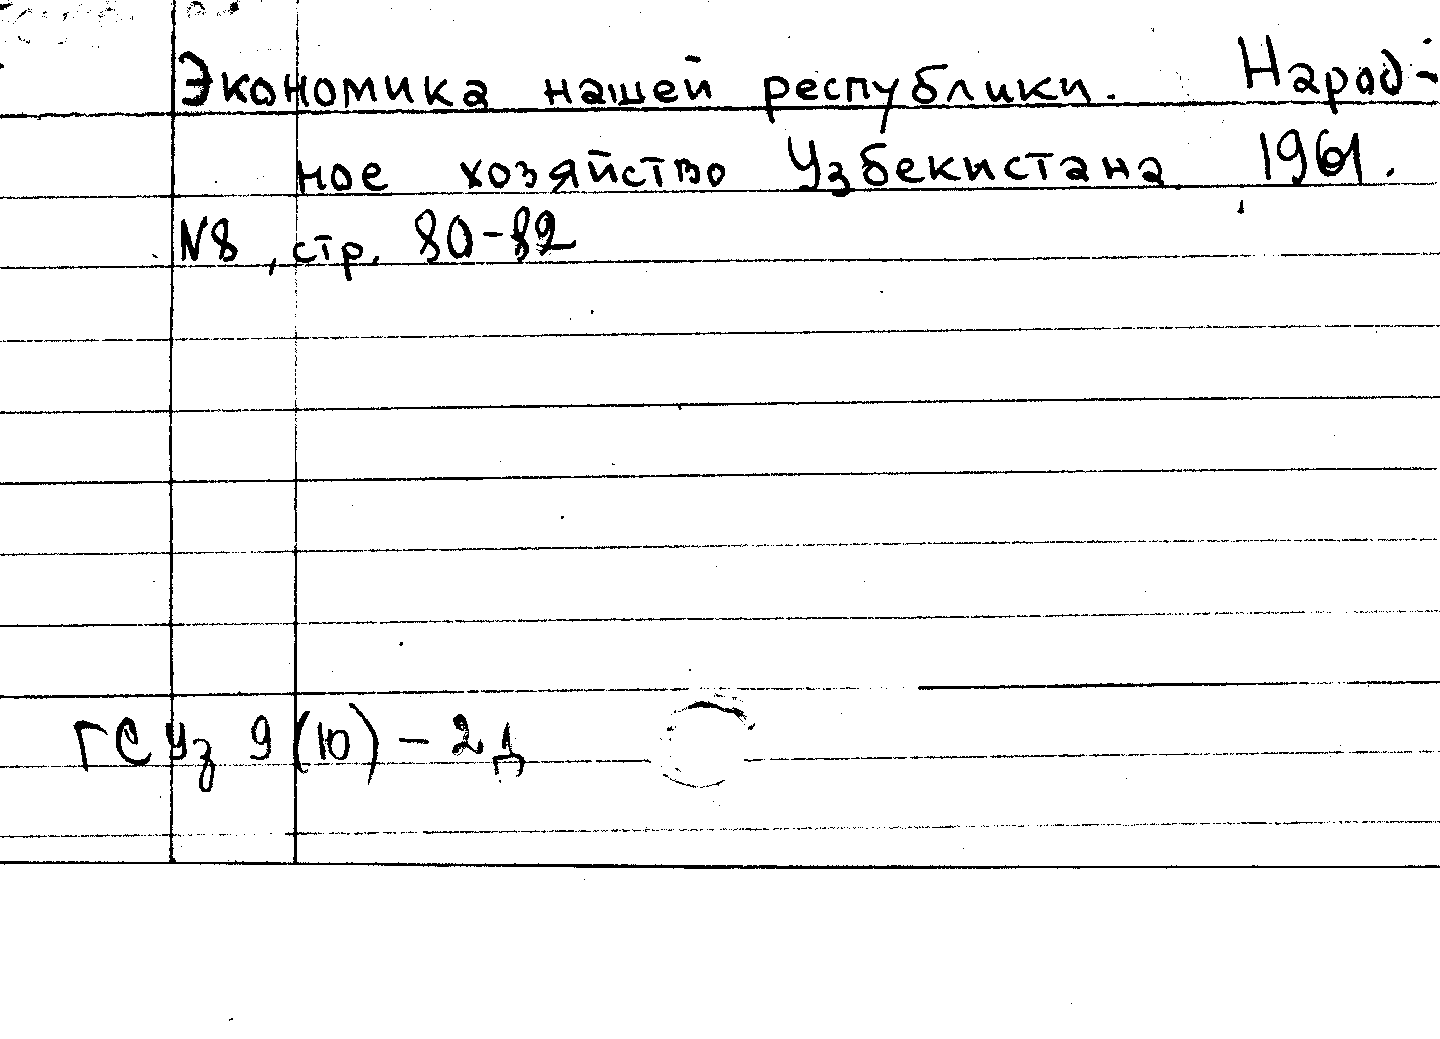 Экономика нашей республики. Народ-
ное хозяйство Узбекистана 1961.
N8, стр. 80-82
ГСУз 9(10) - 2д